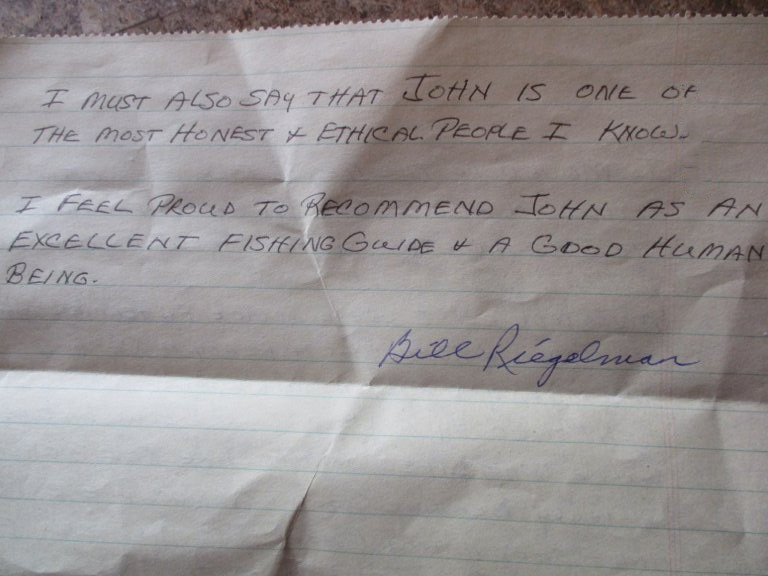 I MUST ALSO SAY THAT JOHN IS ONE OF
THE MOST HONEST & ETHICAL PEOPLE I KNOW.
I FEEL PROUD TO RECOMMEND JOHN AS AN
EXCELLENT FISHING GUIDE & A GOOD HUMAN
BEING.
Bill Riegelman